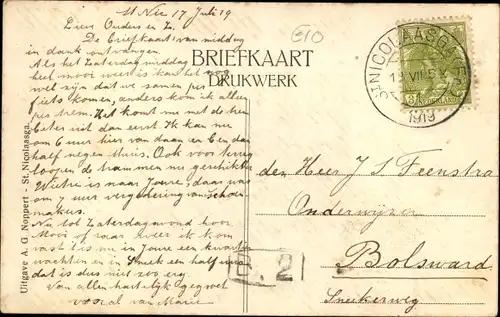 St Nic 17 Juli 19
Lieve Ouders en Z.
De briefkaart van middag
in dank ontvangen.
Als het Zaterdagmiddag
heel mooi weer is kan het
wel zijn dat we samen per
fiets komen, anders kom ik alleen
per trem. Het komt me met de trem
beter uit dan eerst. Ik kan nu
om 6 uur hier van daan en ben dan
half negen thuis. Ook voor
loopen de trammen nu geschikter
is naar Joure, daar was
om 7 uur vergadering van schoen-
makers.
Nu tot Zaterdagavond hoor.
Mooi of raar weer ik kom
vast bus me in Joure een kwartier
wachten en in Sneek een half uur
dat is dus niet zoo erg.
Van allen hartelijk gegroet
vooral van Marie
BRIEFKAART
DRUKWERK
ST NICOLAASGA
1919
NEDERLAND
den Heer J S Feenstra
Onderwijzer
Bolsward
Sneekerweg
B. 2
Uitgave A. G. Noppert - St. Nicolaasga.